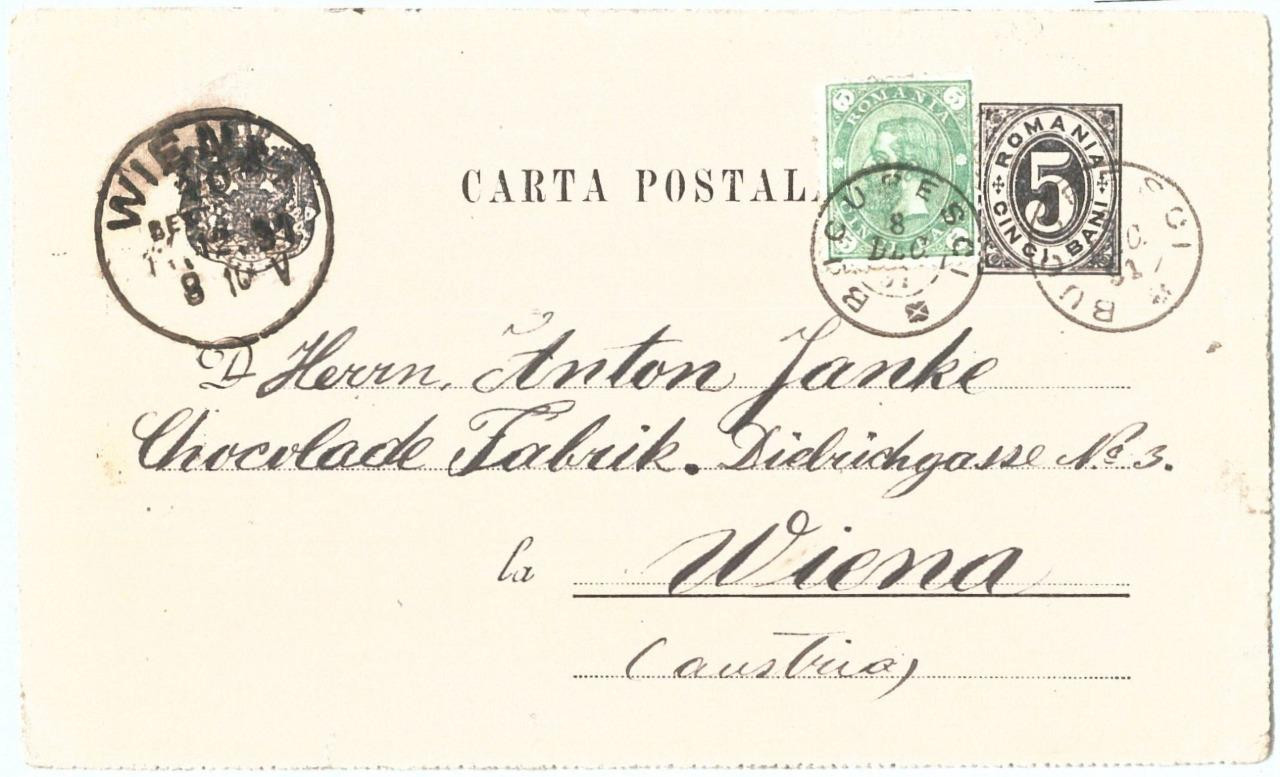 WIEN
BE
8 10 V
CARTA POSTAL
5 ROMANIA 5
CINCI BANI
ROMANIA
5
CINCI BANI
BUCURESCI
8
DEC
91
BUCURESCI
91
D Herrn, Anton Janke
Chocolade Fabrik. Diedrichgasse No 3.
la Wiena
(austria)